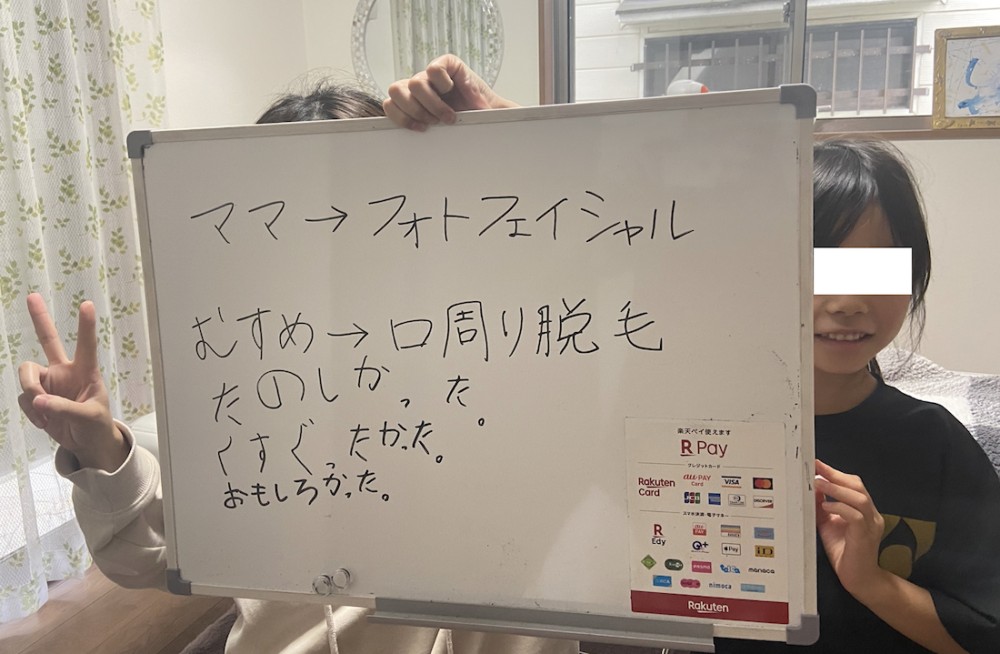 ママ→フォトフェイシャル
むすめ→口周り脱毛
たのしかった。
くすぐったかった。
おもしろかった。
楽天ペイ使えます
R Pay
クレジットカード
Rakuten Card
au PAY Card
VISA
JCB
DISCOVER
スマホ決済・電子マネー
R Edy
Pay
iD
manaca
nimoca
Rakuten